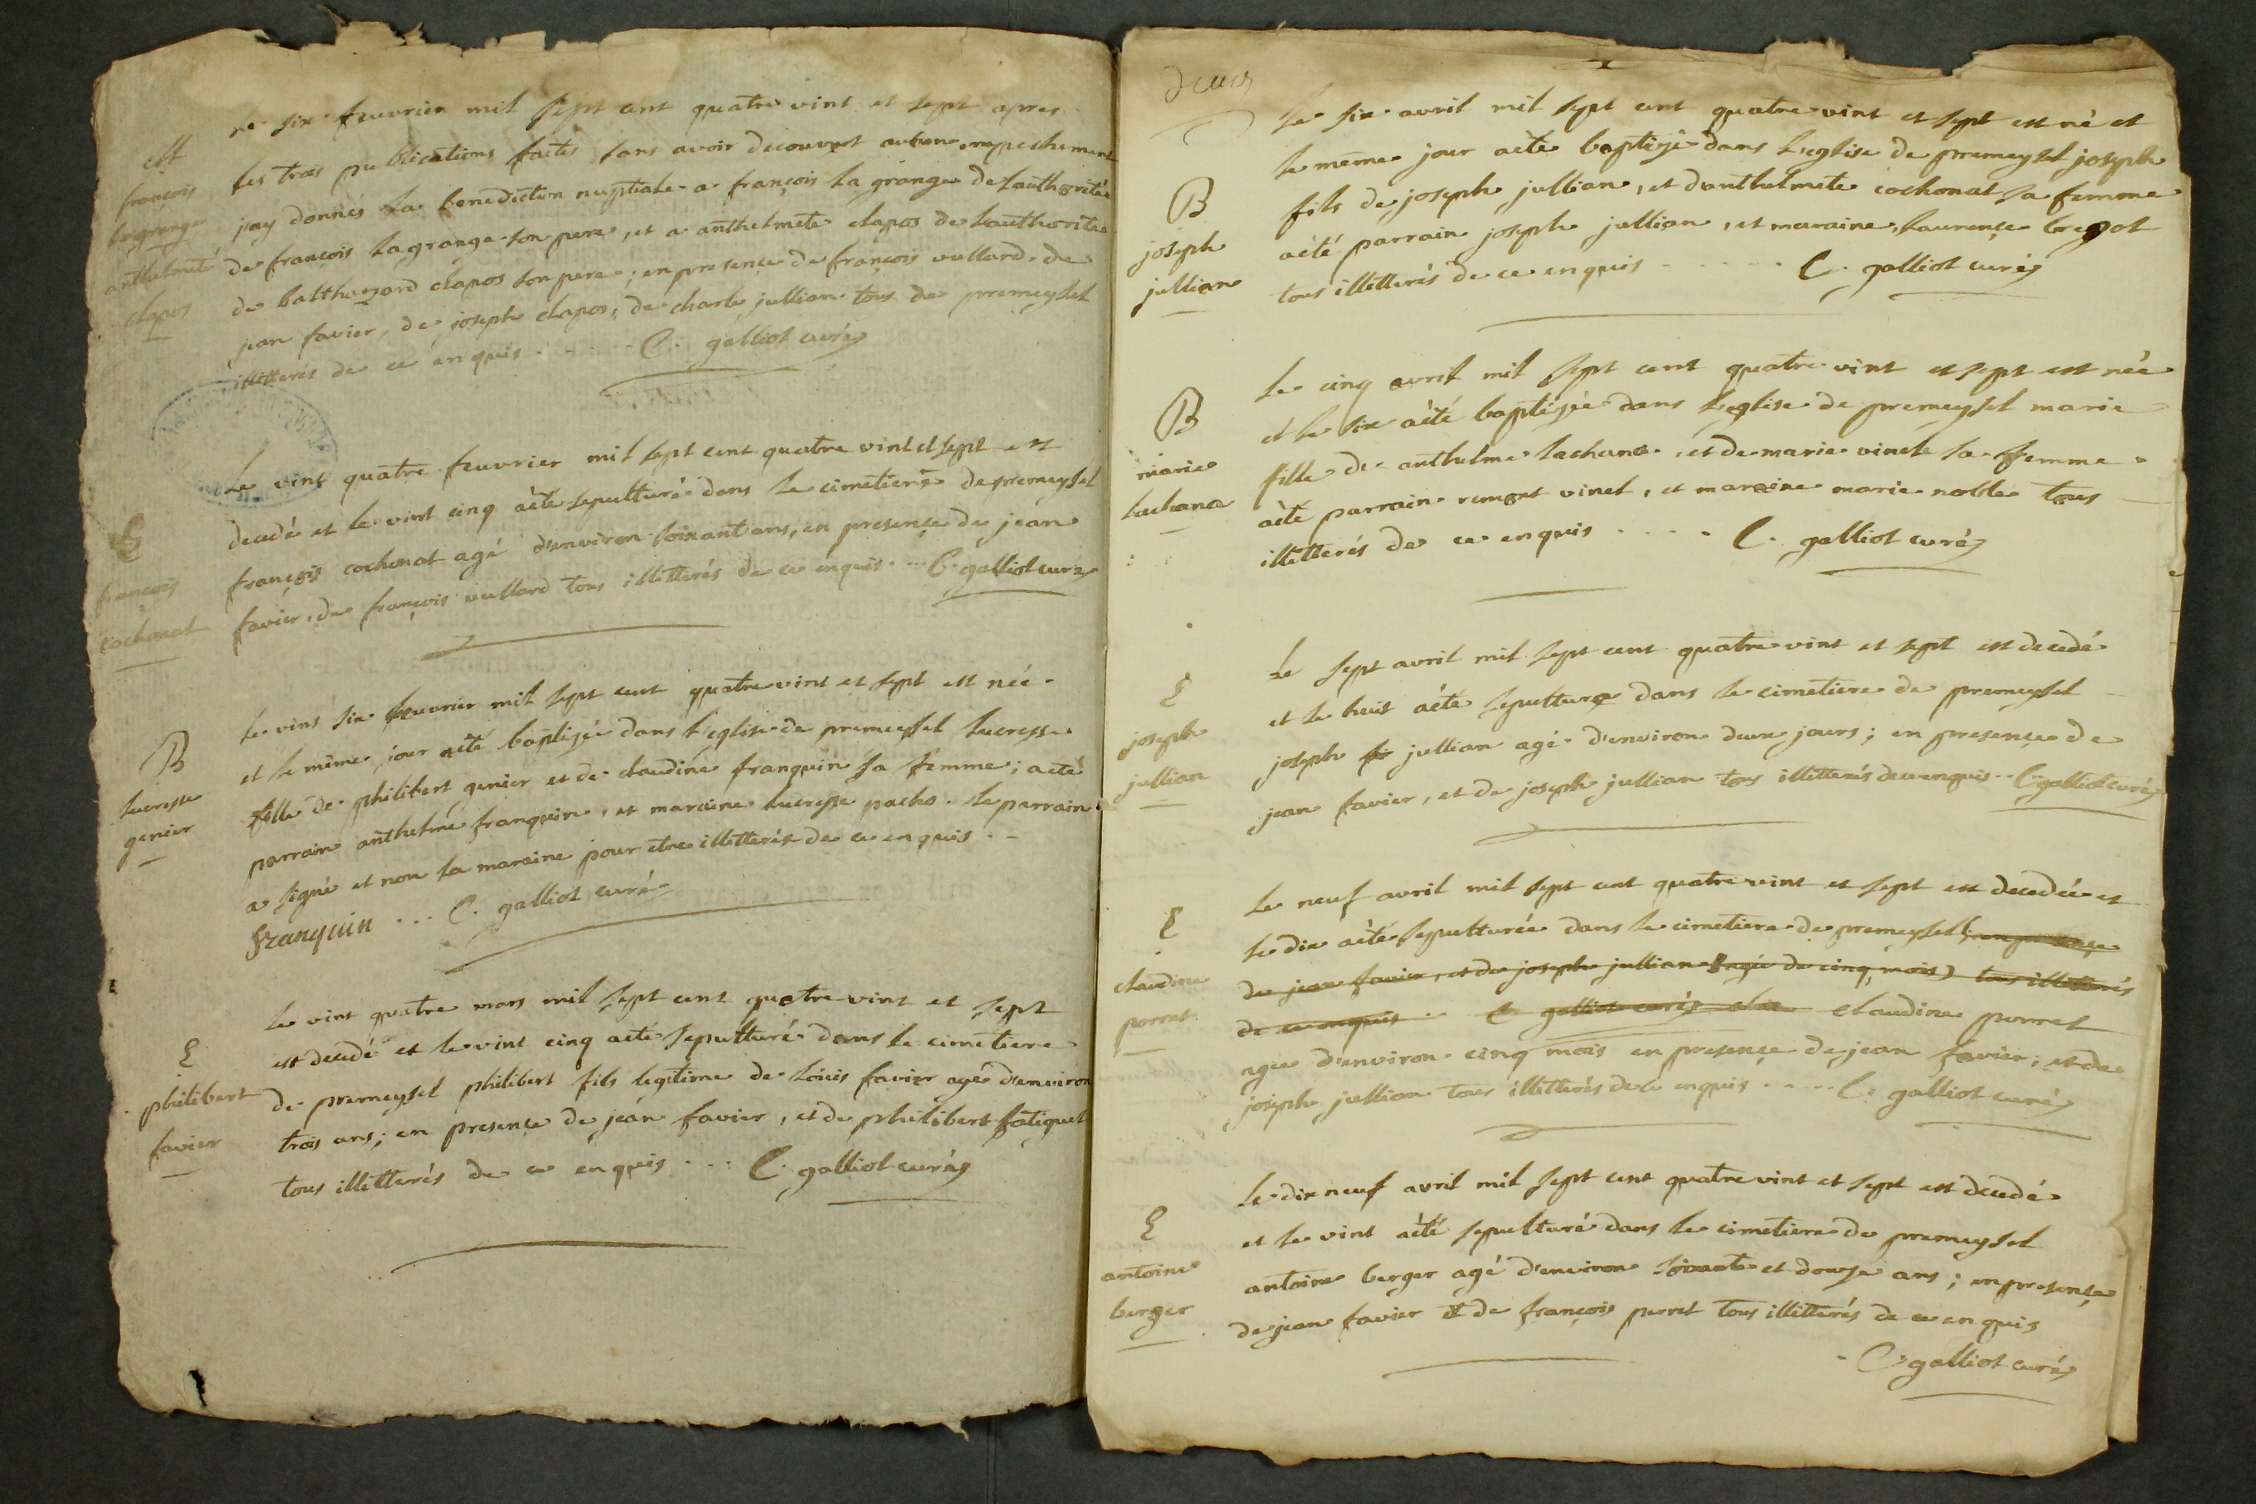 M
françois
lagrange
anthelmete
clapos
Le six feuvrier mil sept cent quatre vint et sept apres
les trois publications faites sans avoir decouvert aucun empechement
jay donnés la benediction nuptiale a françois la grange de lauthorité
de françois lagrange son pere, et a anthelmete clapos de lauthorité
de balthazard clapos son pere; en presençe de françois vullard. de
jean favier, de joseph clapos, de charle jullian tous de premeysel
illitterés de ce enquis . . . . . C. galliot curé
E
françois
cochonat
Le vint quatre feuvrier mil sept cent quatre vint et sept est
decedé et le vint cinq aèté sepulturé dans le cimetiere de premeysel
françois cochonat agé d'environ soixant ans, en presençe de jean
favier, de françois vullard tous illitterés de ce enquis . . . C. galliot curé
B
lucresse
genier
Le vint six feuvrier mil sept cent quatre vint et sept est née
et le même jour aèté baptisée dans l'eglise de premeysel lucresse
fille de philibert genier et de claudine franquin sa femme; aèté
parrain anthelme franquin, et maraine lucresse pacho. le parrain
a signé et non la maraine pour etre illitterée de ce enquis . -
franquin . . . C. galliot curé
E
philibert
favier
Le vint quatre mars mil sept cent quatre vint et sept
est decedé et le vint cinq aèté sepulturé dans le cimetiere
de premeysel philibert fils legitime de loüis favier agé d'environ
trois ans; en presençe de jean favier, et de philibert fatiquet
tous illitterés de ce enquis . . . C. galliot curé
deux
B
joseph
jullian
Le six avril mil sept cent quatre vint et sept est né et
le meme jour aèté baptisé dans l'eglise de premeysel joseph
fils de joseph jullian, et d'anthelmete cochonat sa femme
aèté parrain joseph jullian, et maraine laurençe
tous illitterés de ce enquis . . . . . C. galliot curé
B
marie
lachana
Le cinq avril mil sept cent quatre vint et sept est née
et le six aèté baptisée dans l'eglise de premeysel marie
fille de anthelme lachana, et de marie vinet sa femme
aèté parrain vinet, et maraine marie noble tous
illitterés de ce enquis . . . . C. galliot curé
E
joseph
jullian
Le sept avril mil sept cent quatre vint et sept est decedé
et le huit aèté sepulturé dans le cimetiere de premeysel
joseph jullian agé d'environ deux jours; en presençe de
jean favier, et de joseph jullian tous illitterés de ce enquis . . C. galliot curé
E
claudine
porret
Le neuf avril mil sept cent quatre vint et sept est decedée et
le dix aèté sepulturée dans le cimetiere de premeysel (en presençe
de jean favier, et de joseph jullian agée de cinq mois) tous illitterés
de ce enquis . . C. galliot curé claudine porret
agée d'environ cinq mois en presençe de jean favier; et de
joseph jullian tous illitterés de ce enquis . . . . C. galliot curé
E
antoine
berger
Le dix neuf avril mil sept cent quatre vint et sept est decedé
et le vint aèté sepulturé dans le cimetiere de premeysel
antoine berger agé d'environ soixante et douze ans; en presençe
de jean favier et de françois perret tous illitterés de ce enquis
C. galliot curé